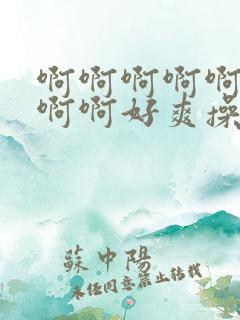 啊啊啊啊啊
啊啊好爽操
蘇中陽
未经同意禁止转载